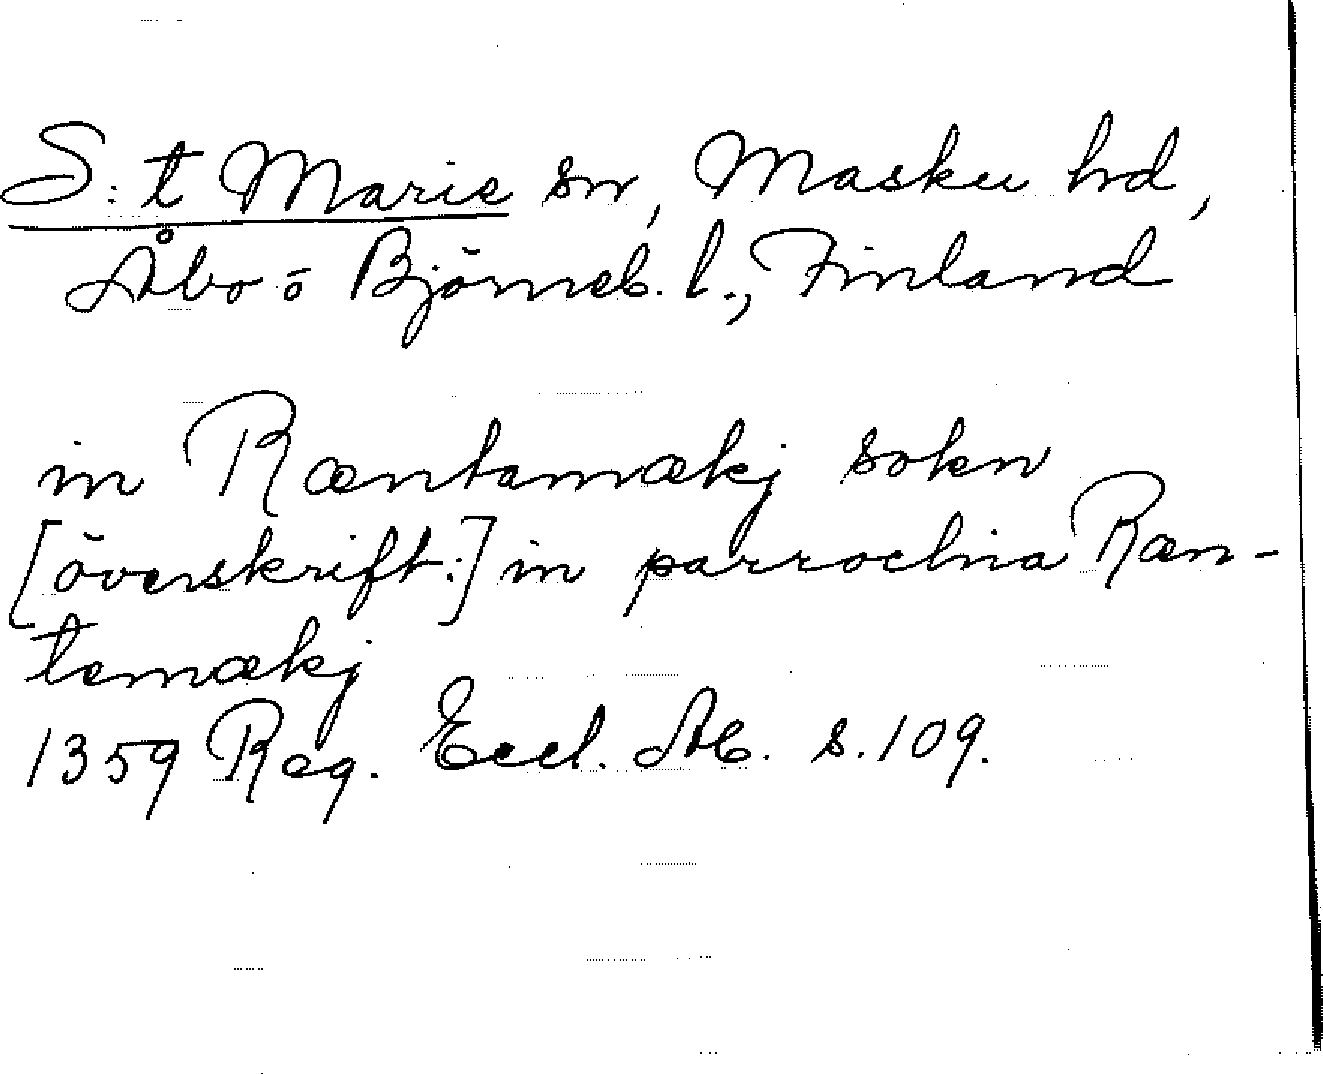 S:t Marie sn, Masku hd,
Åbo o Björneb. l., Finland
in Ræntamækj sokn
[överskrift:] in parrochia Ræn-
temækj
1359 Reg. Eccl. Ab. s. 109.